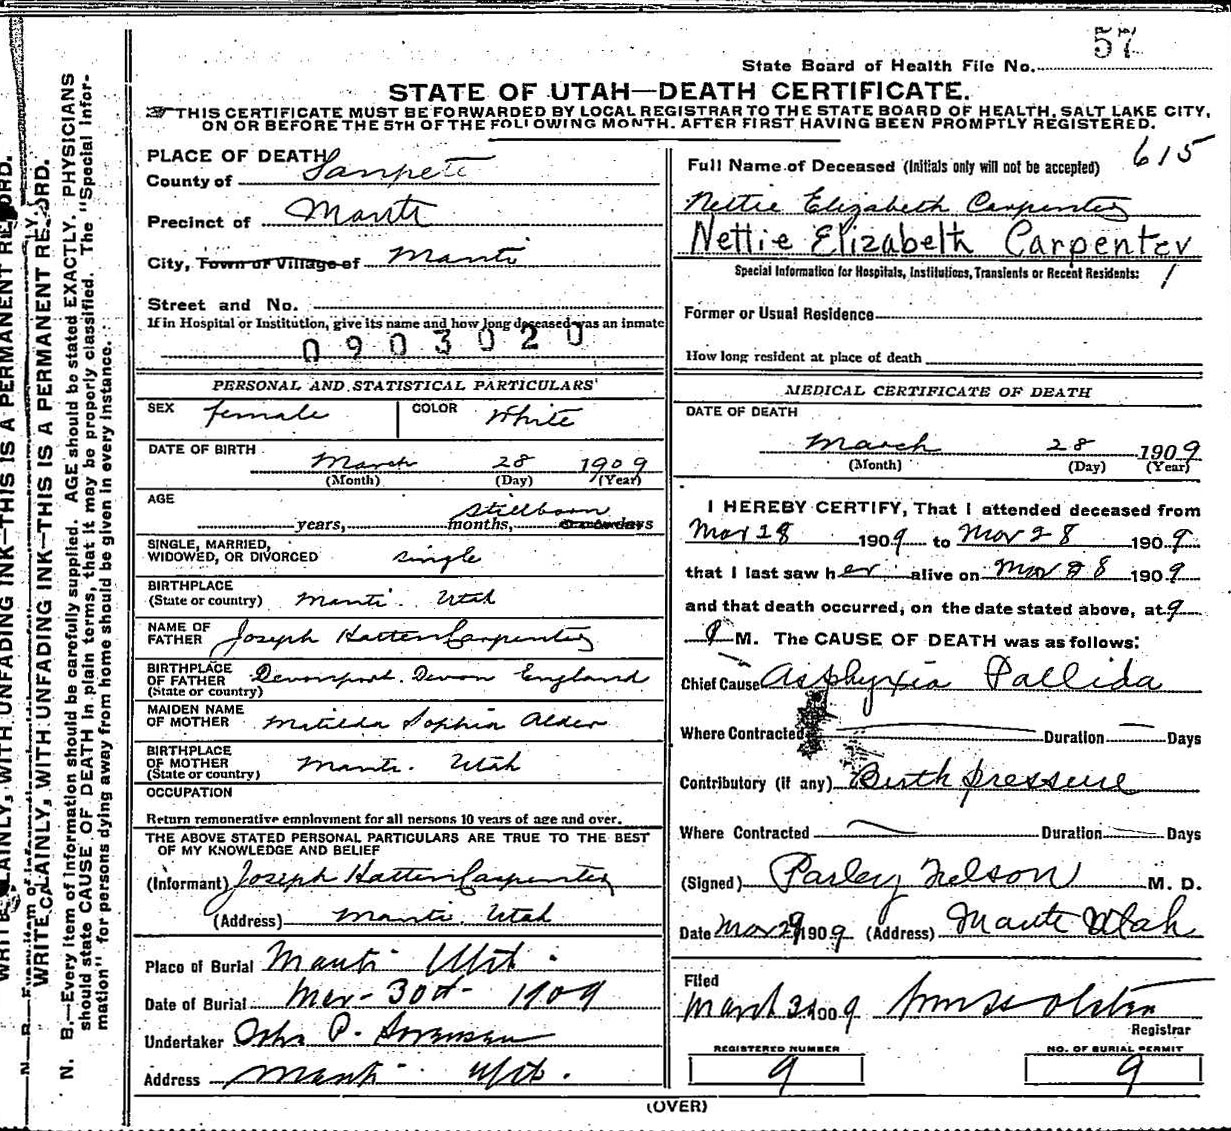 57
State Board of Health File No.
STATE OF UTAH—DEATH CERTIFICATE.
THIS CERTIFICATE MUST BE FORWARDED BY LOCAL REGISTRAR TO THE STATE BOARD OF HEALTH, SALT LAKE CITY,
ON OR BEFORE THE 5TH OF THE FOLLOWING MONTH. AFTER FIRST HAVING BEEN PROMPTLY REGISTERED.
PLACE OF DEATH
County of Sanpete
Precinct of Manti
City, Town or Village of Manti
Street and No.
If in Hospital or Institution, give its name and how long deceased was an inmate
0903020
PERSONAL AND STATISTICAL PARTICULARS
SEX female COLOR White
DATE OF BIRTH March 28 1909
(Month) (Day) (Year)
AGE Stillborn
years, months, days
SINGLE, MARRIED,
WIDOWED, OR DIVORCED single
BIRTHPLACE
(State or country) Manti. Utah
NAME OF
FATHER Joseph Hatten Carpenter
BIRTHPLACE
OF FATHER Devonport. Devon England
(State or country)
MAIDEN NAME
OF MOTHER Matilda Sophia Alder
BIRTHPLACE
OF MOTHER Manti. Utah
(State or country)
OCCUPATION
Return remunerative employment for all persons 10 years of age and over.
THE ABOVE STATED PERSONAL PARTICULARS ARE TRUE TO THE BEST
OF MY KNOWLEDGE AND BELIEF
(Informant) Joseph Hatten Carpenter
(Address) Manti. Utah
Place of Burial Manti Utah.
Date of Burial Mar- 30th- 1909
Undertaker P. Sorensen
Address Manti Utah.
615
Full Name of Deceased (Initials only will not be accepted)
Nettie Elizabeth Carpenter
Nettie Elizabeth Carpenter
Special Information for Hospitals, Institutions, Transients or Recent Residents: 1
Former or Usual Residence
How long resident at place of death
MEDICAL CERTIFICATE OF DEATH
DATE OF DEATH
March 28 1909
(Month) (Day) (Year)
I HEREBY CERTIFY, That I attended deceased from
Mar 28 1909 to Mar 28 1909
that I last saw her alive on Mar 28 1909
and that death occurred, on the date stated above, at 9
P M. The CAUSE OF DEATH was as follows:
Chief Cause Asphyxia Pallida
Where Contracted Duration Days
Contributory (if any) Birth pressure
Where Contracted Duration Days
(Signed) Parley Nelson M. D.
Date Mar 29 1909 (Address) Manti Utah
Filed
March 1909
Registrar
REGISTERED NUMBER NO. OF BURIAL PERMIT
9 9
(OVER)
WRITE PLAINLY, WITH UNFADING INK—THIS IS A PERMANENT RECORD.
N. B.—Every item of information should be carefully supplied. AGE should be stated EXACTLY. PHYSICIANS
should state CAUSE OF DEATH in plain terms, that it may be properly classified. The "Special Infor-
mation" for persons dying away from home should be given in every instance.